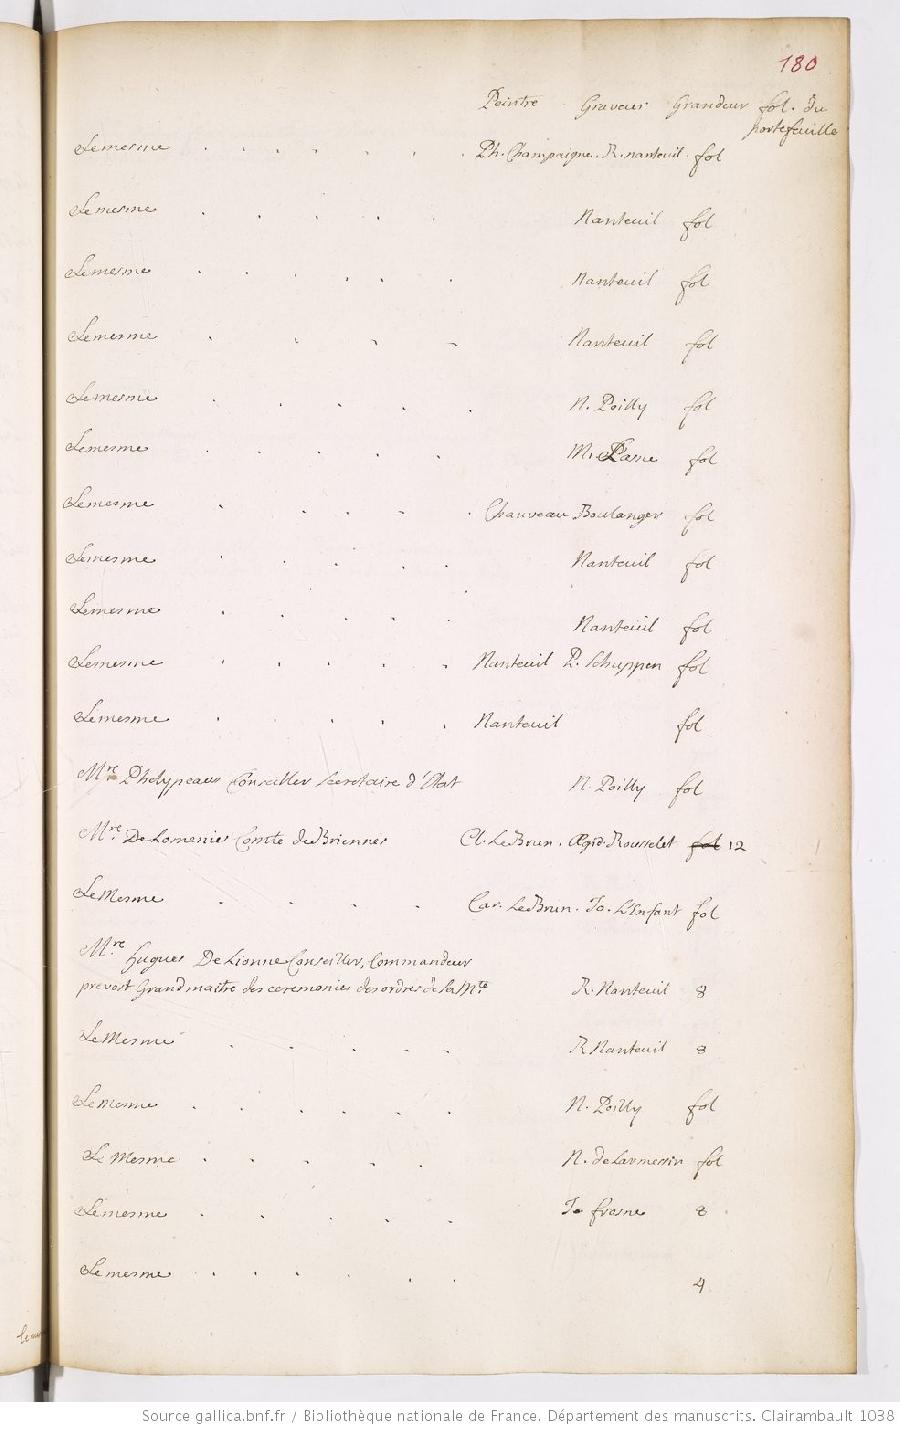 180
Peintre Graveur Grandeur fol. du
portefeuille
Lemesme . . . . . . Ph. Champaigne. R. nanteuil. fol
Lemesme . . . . Nanteuil fol
Lemesme . . . . . Nanteuil fol
Lemesme . . . . Nanteuil fol
Lemesme . . . . . N. Poilly fol
Lemesme . . . . M. fol
Lemesme . . . . . Chauveau Boulanger fol
Lemesme . . . . . Nanteuil fol
Lemesme . . . . . Nanteuil fol
Lemesme . . . . . Nanteuil P. Schuppen fol
Lemesme . . . . . Nanteuil fol
Mre Phelypeaux Conseiller secretaire d'Etat N. Poilly fol
Mre De Lomenie Comte de Brienne Cl. LeBrun. Ægid. Rousselet fol 12
Le Mesme . . . . Car. LeBrun. Jo. L'Enfant fol
Mre Hugues De Lionne Conseiller, Commandeur
prevost Grand maitre des ceremonies des ordres de sa Mté R. Nanteuil 8
Le Mesme . . . . . R Nanteuil 8
Le Mesme . . . . . . N. Poilly fol
Le Mesme . . . . . N. de Larmessin fol
Lemesme . . . . . Jo fresne 8
Lemesme . . . . . . 4
Source gallica.bnf.fr / Bibliothèque nationale de France. Département des manuscrits. Clairambault 1038